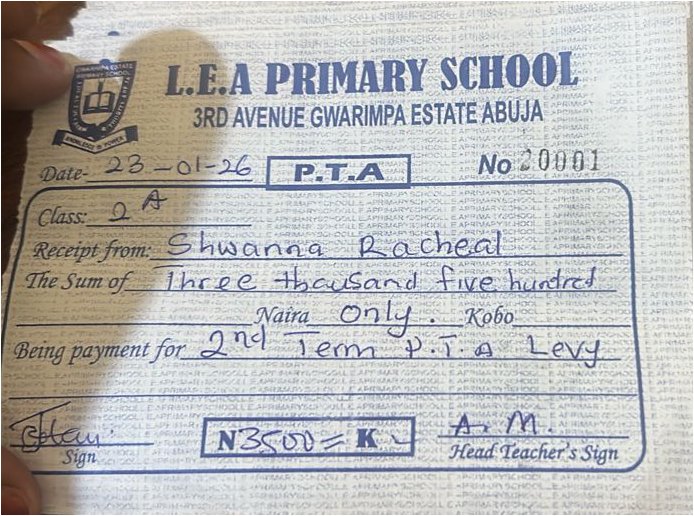 GWARIMPA ESTATE
PRIMARY SCHOOL
KNOWLEDGE IS POWER
L.E.A PRIMARY SCHOOL
3RD AVENUE GWARIMPA ESTATE ABUJA
Date- 23-01-26 P.T.A No 20001
Class: 2A
Receipt from: Shwanna Racheal
The Sum of Three thousand five hundred
Naira Only. Kobo
Being payment for 2nd Term P.T.A Levy
N3500= K
A.M.
Sign
Head Teacher's Sign